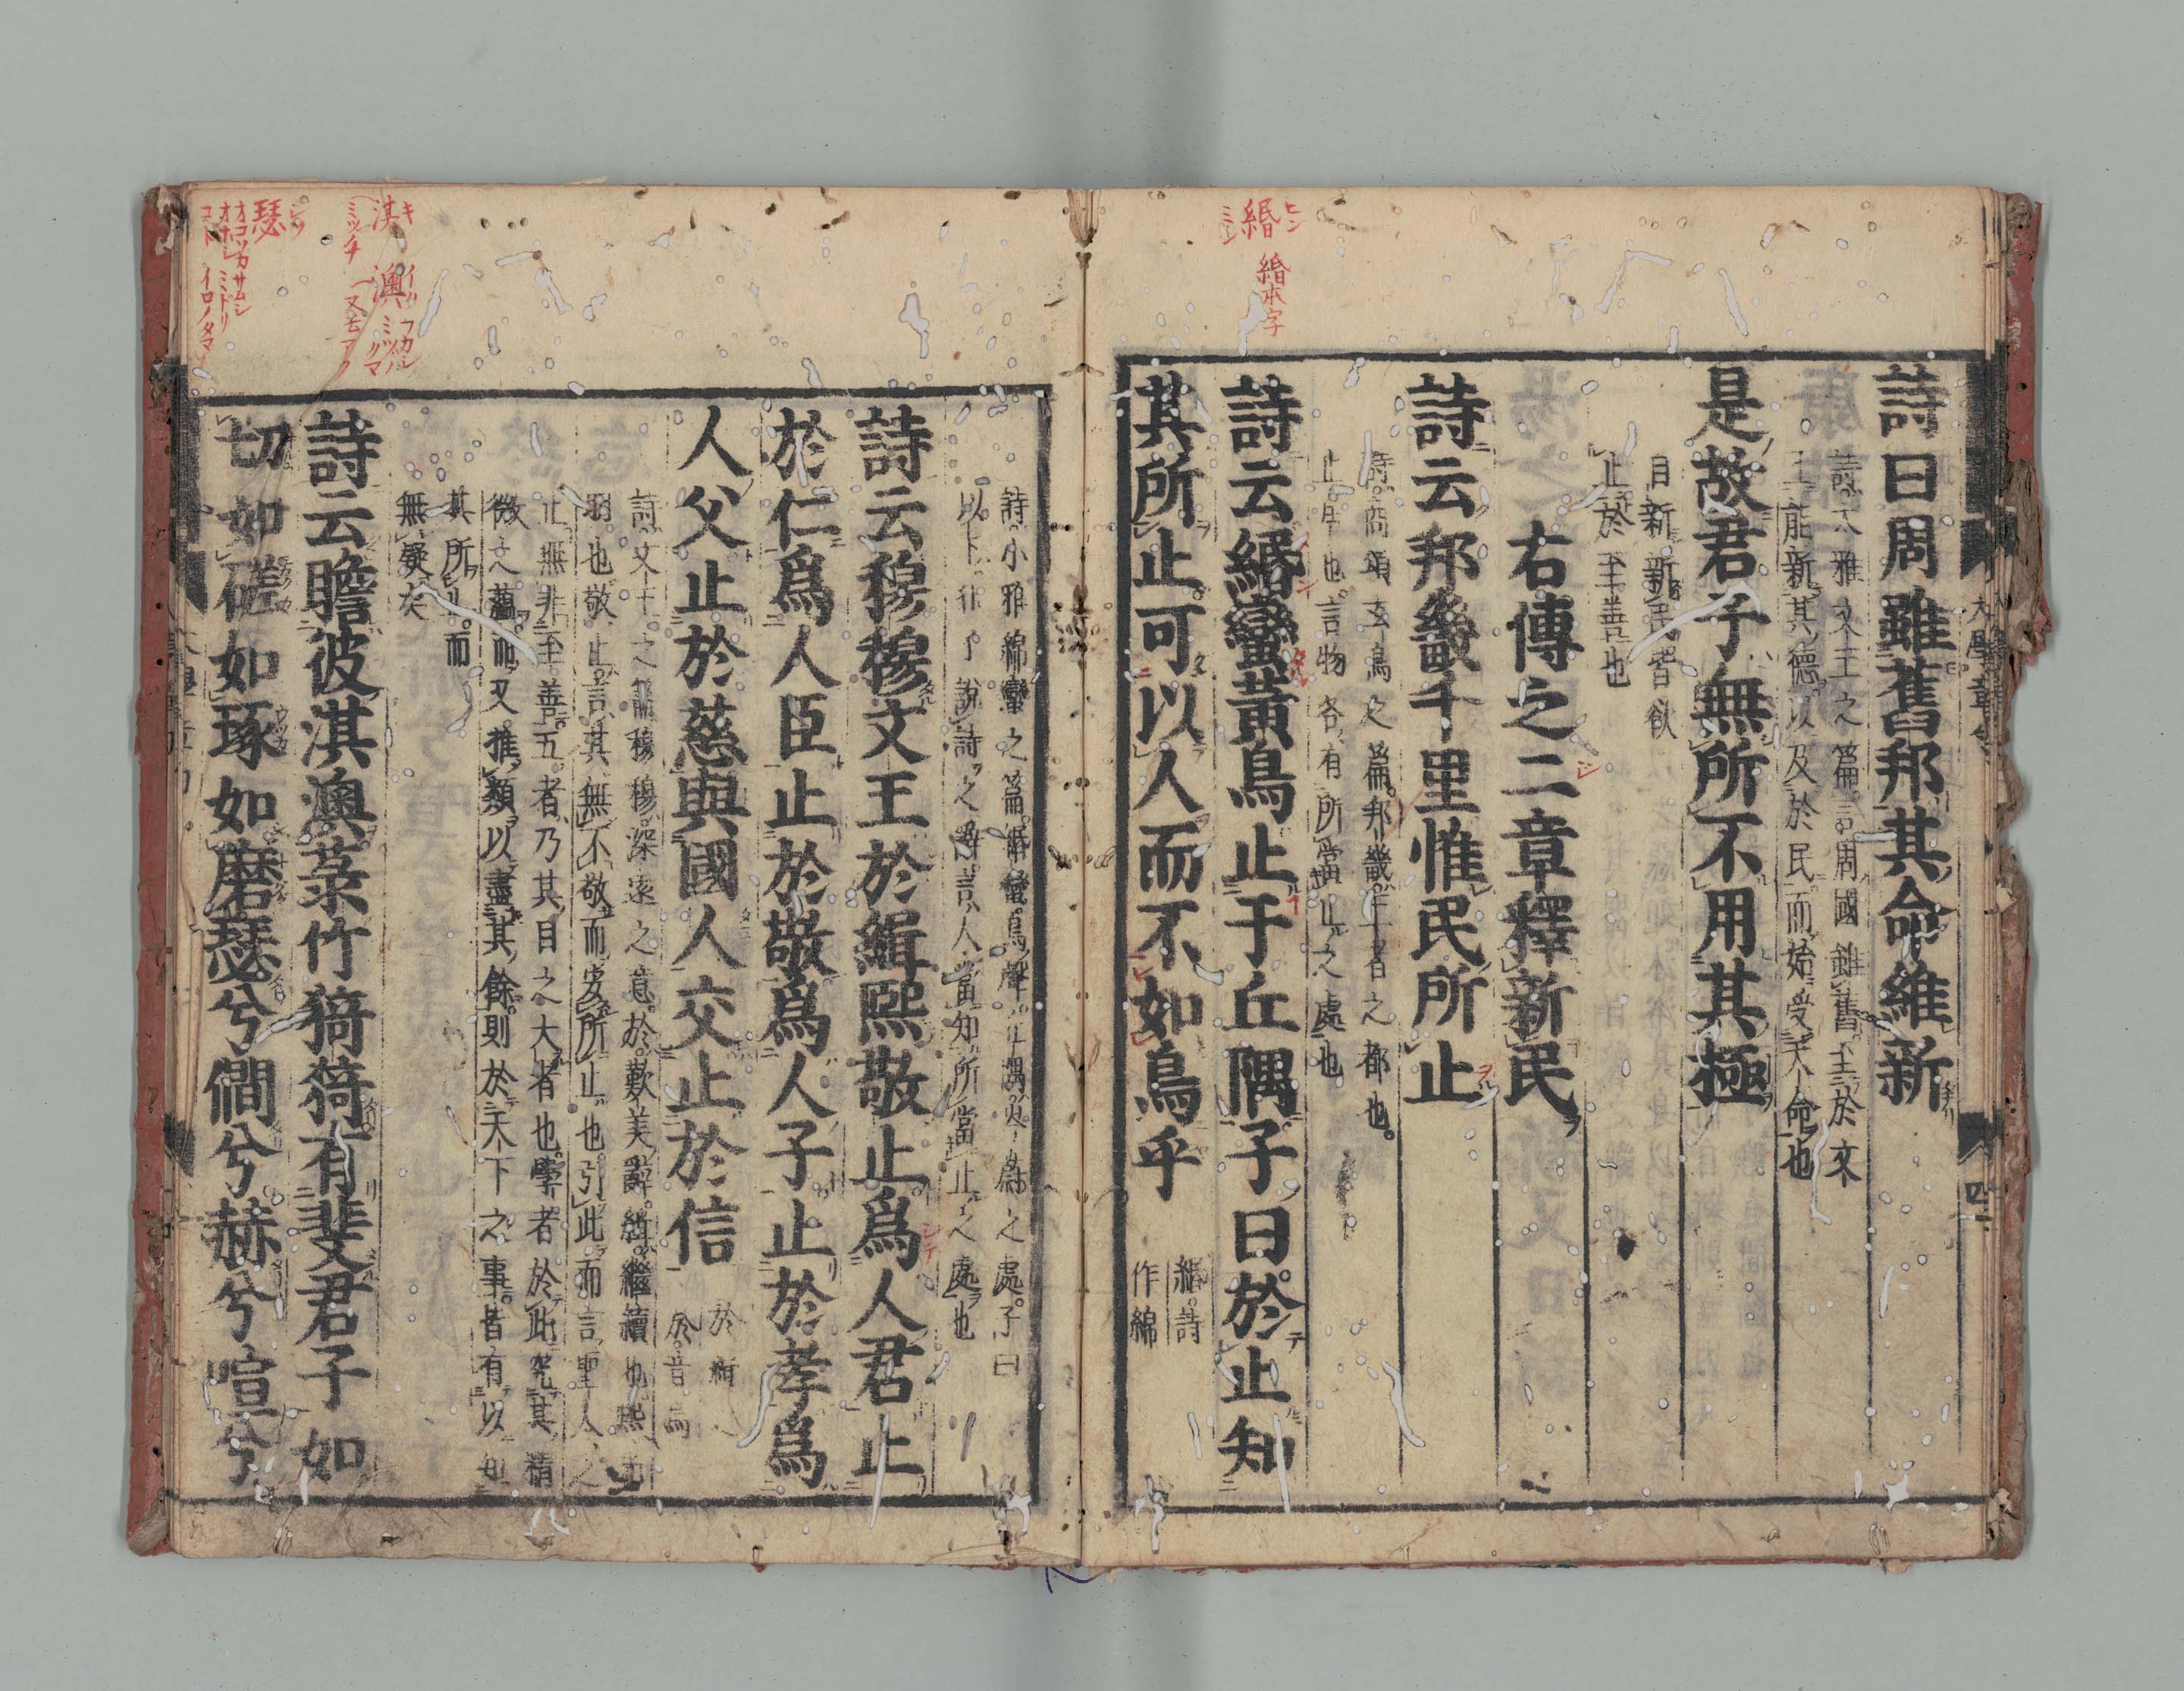 詩曰周雖舊邦其命維新
詩大雅文王之篇言周國雖舊至於文
王能新其德以及於民而始受天命也
是故君子無所不用其極
自新新民皆欲
止於至善也
右傳之二章釋新民
詩云邦畿千里惟民所止
詩商頌玄鳥之篇邦畿王者之都也
止居也言物各有所當止之處也
詩云緡蠻黃鳥止于丘隅子曰於止知
其所止可以人而不如鳥乎
緡詩
作綿
緡 ヒン ミン
緡本字
大學章句
四
詩小雅綿蠻之篇緡蠻鳥聲丘隅岑蔚之處子曰
以下孔子說詩之辭言人當知所當止之處也
詩云穆穆文王於緝熙敬止爲人君止
於仁爲人臣止於敬爲人子止於孝爲
人父止於慈與國人交止於信
於緝之
於音烏
詩文王之篇穆穆深遠之意於歎美辭緝繼續也熙光
明也敬止言其無不敬而安所止也引此而言聖人之
止無非至善五者乃其目之大者也學者於此究其精
微之蘊而又推類以盡其餘則於天下之事皆有以知
其所止而
無疑矣
詩云瞻彼淇澳菉竹猗猗有斐君子如
切如磋如琢如磨瑟兮僩兮赫兮喧兮
淇 キ
ミツチ
澳 イク フカシ
ミツノクマ
又云アウ
瑟 シツ
オコツカサムシ
オホシ ミドリ
コト イロノタマ